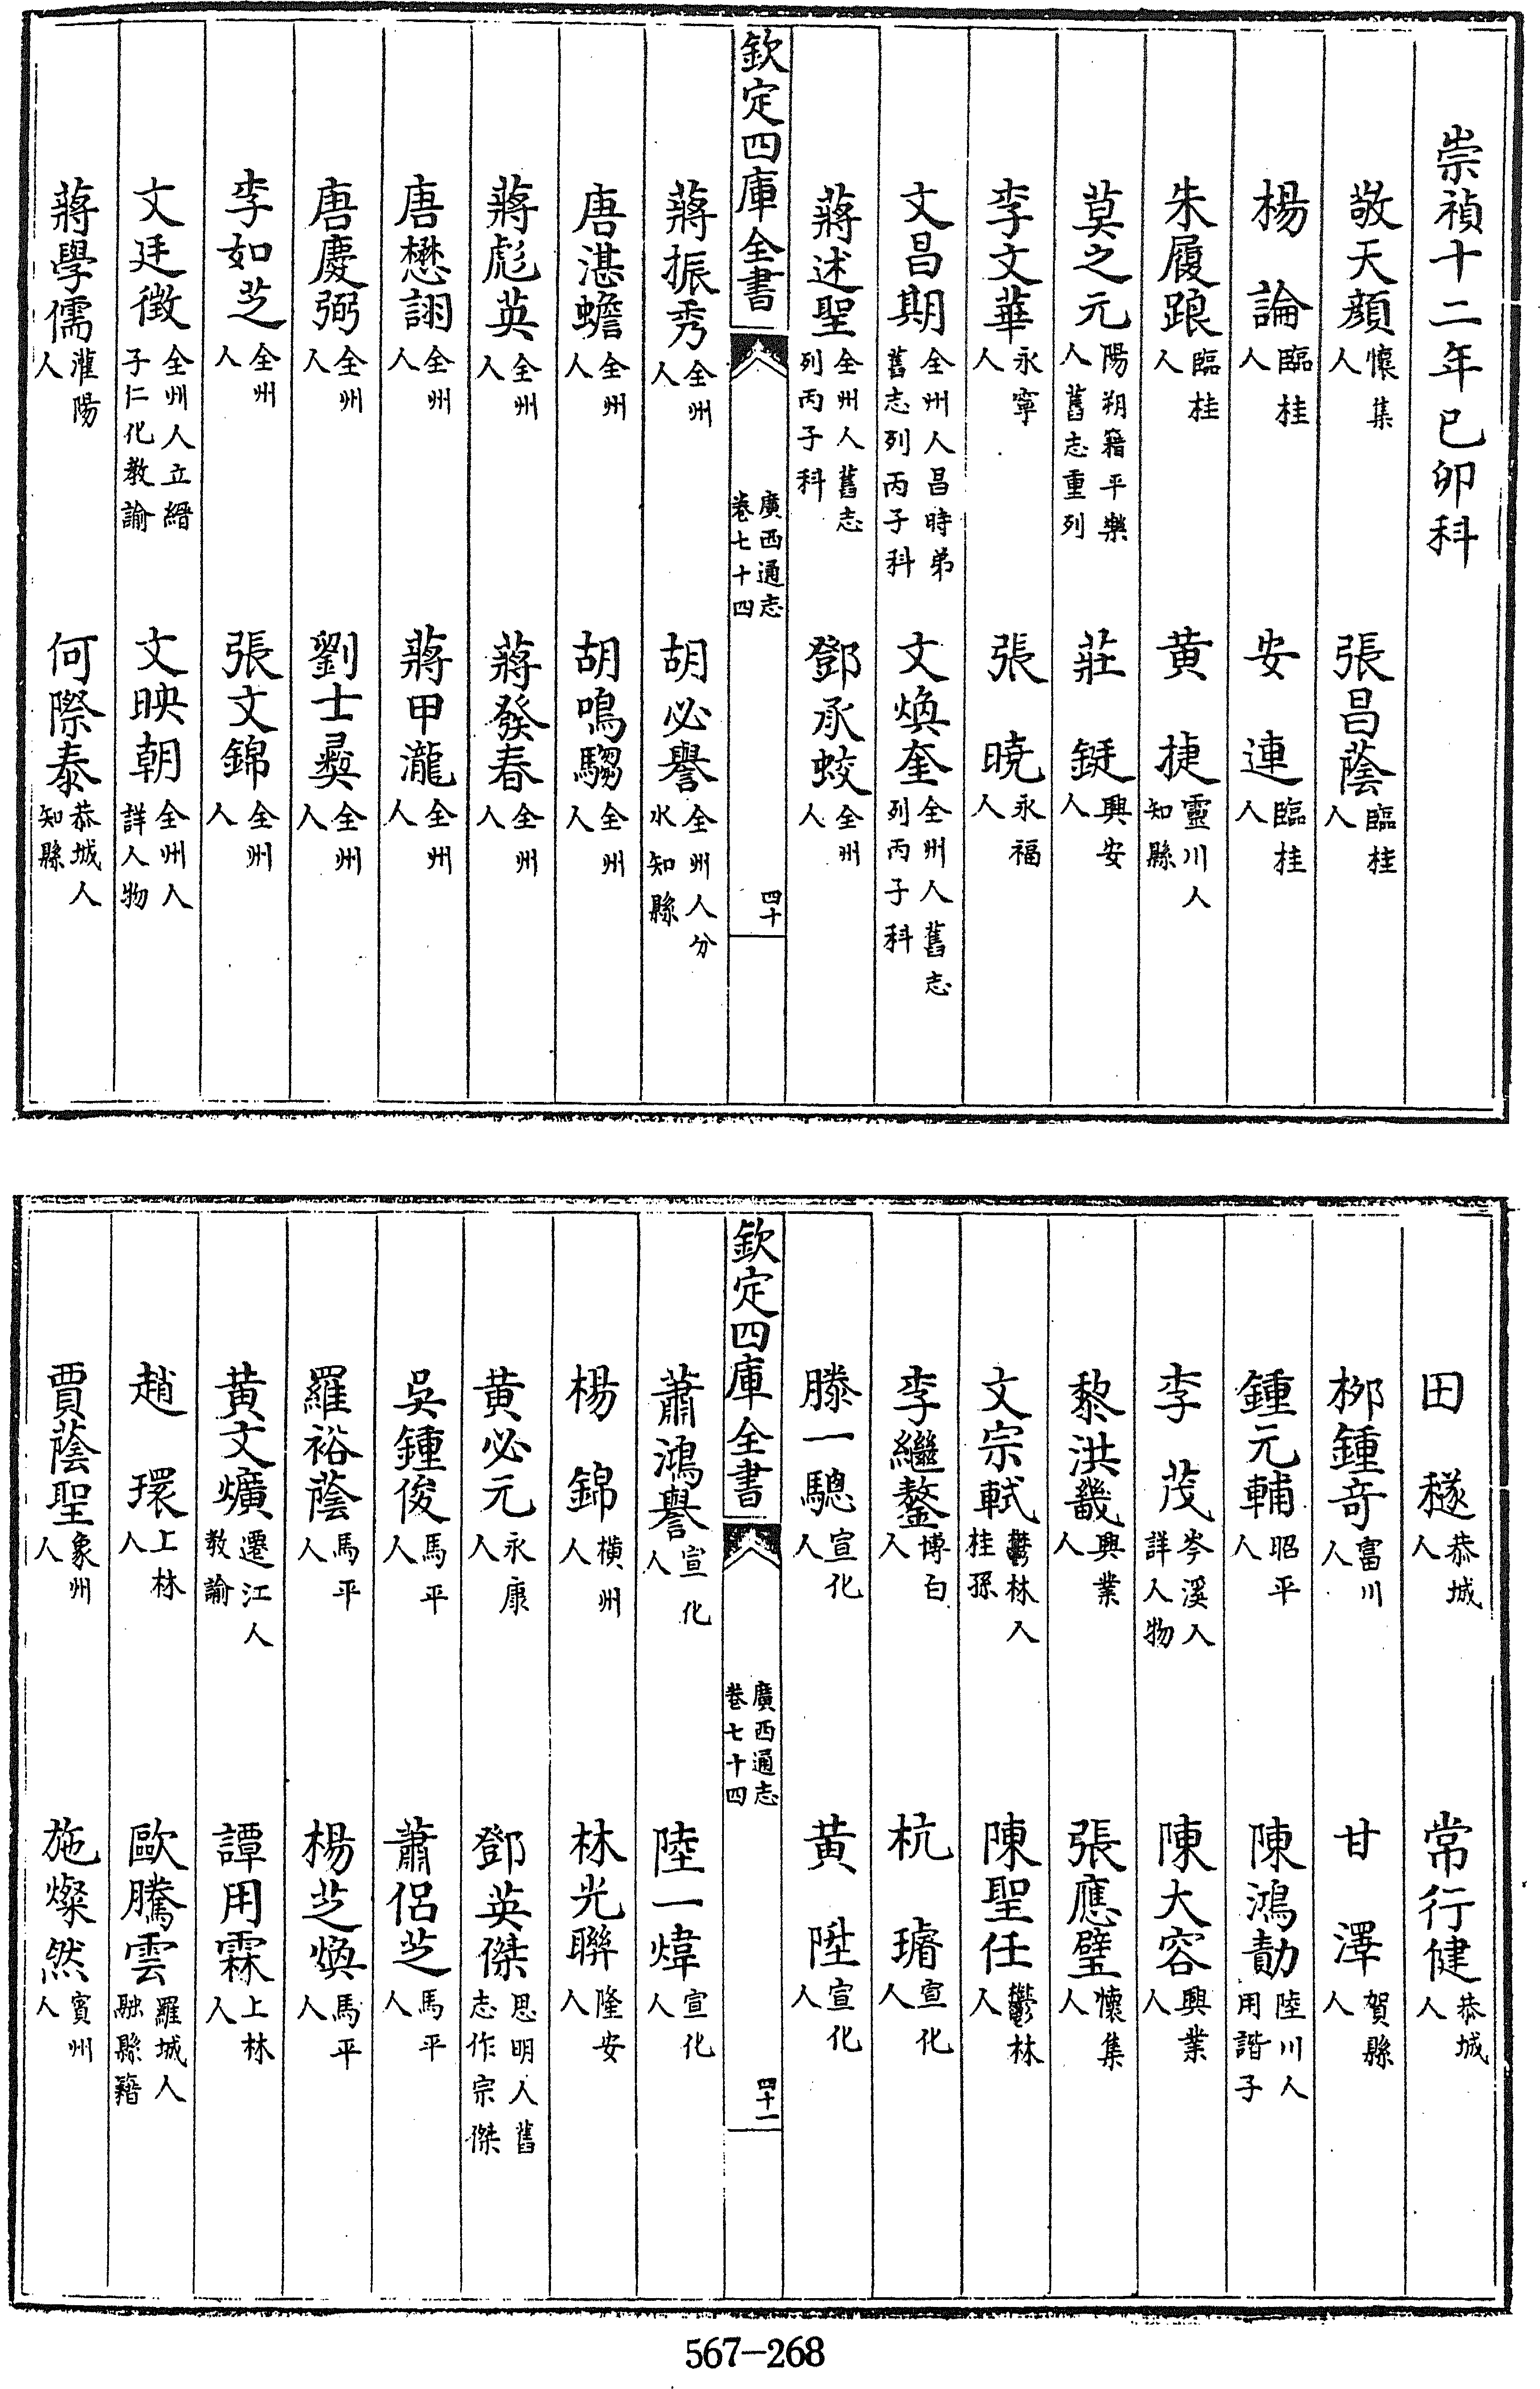 崇禎十二年已卯科
敬天顔懷集人　張昌蔭臨桂人
楊論臨桂人　安連臨桂人
朱履踉臨桂人　黄捷靈川人知縣
莫之元陽朔籍平樂人舊志重列　莊鋌興安人
李文華永寧人　張曉永福人
文昌期全州人昌時弟舊志列丙子科　文煥奎全州人舊志列丙子科
蔣述聖全州人舊志列丙子科　鄧承蛟全州人
欽定四庫全書　廣西通志卷七十四　四十
蔣振秀全州人　胡必譽全州人分水知縣
唐湛蟾全州人　胡鳴騶全州人
蔣彪英全州人　蔣發春全州人
唐懋詡全州人　蔣甲瀧全州人
唐慶弼全州人　劉士彜全州人
李如芝全州人　張文錦全州人
文廷徵全州人立縉子仁化教諭　文映朝全州人詳人物
蔣學儒灌陽人　何際泰恭城人知縣
田穟恭城人　常行健恭城人
栁鍾奇富川人　甘澤賀縣人
鍾元輔昭平人　陳鴻勣陸川人用諧子
李茂岑溪人詳人物　陳大容興業人
黎洪畿興業人　張應璧懷集人
文宗軾鬱林人桂孫　陳聖任鬱林人
李繼鏊博白人　杭璿宣化人
滕一驄宣化人　黄陞宣化人
欽定四庫全書　廣西通志卷七十四　四十一
蕭鴻譽宣化人　陸一煒宣化人
楊錦橫州人　林光聨隆安人
黄必元永康人　鄧英傑思明人舊志作宗傑
吳鍾俊馬平人　蕭侣芝馬平人
羅裕蔭馬平人　楊芝煥馬平人
黄文爌遷江人教諭　譚用霖上林人
趙環上林人　歐騰雲羅城人融縣籍
賈蔭聖象州人　施燦然賓州人
567-268